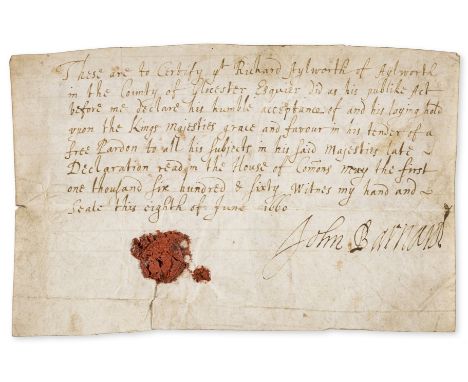 These are to Certefy yt Richard Aylworth of Aylworth
in the County of Glocester Esquier Did as his publike Act
before me declare his humble acceptance of and his laying hold
vpon the Kings Majesties grace and favour in his tender of a
free Pardon to all his Subjects in his said Majesties late
Declaration read in the House of Comons may the first
one thousand six hundred & sixty Witnes my hand and
Seale this eighth of June 1660
John Barnard